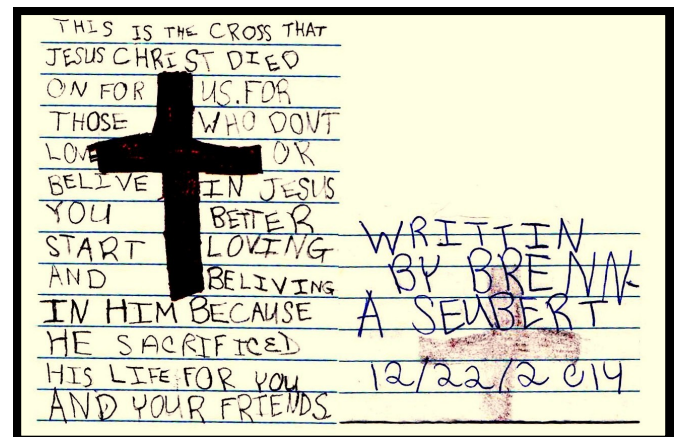 THIS IS THE CROSS THAT
JESUS CHRIST DIED
ON FOR US. FOR
THOSE WHO DONT
LOVE OR
BELIVE IN JESUS
YOU BETTER
START LOVING
AND BELIVING
IN HIM BECAUSE
HE SACRIFICED
HIS LIFE FOR YOU
AND YOUR FRIENDS
WRITTIN
BY BRENN-
A SEUBERT
12/22/2014